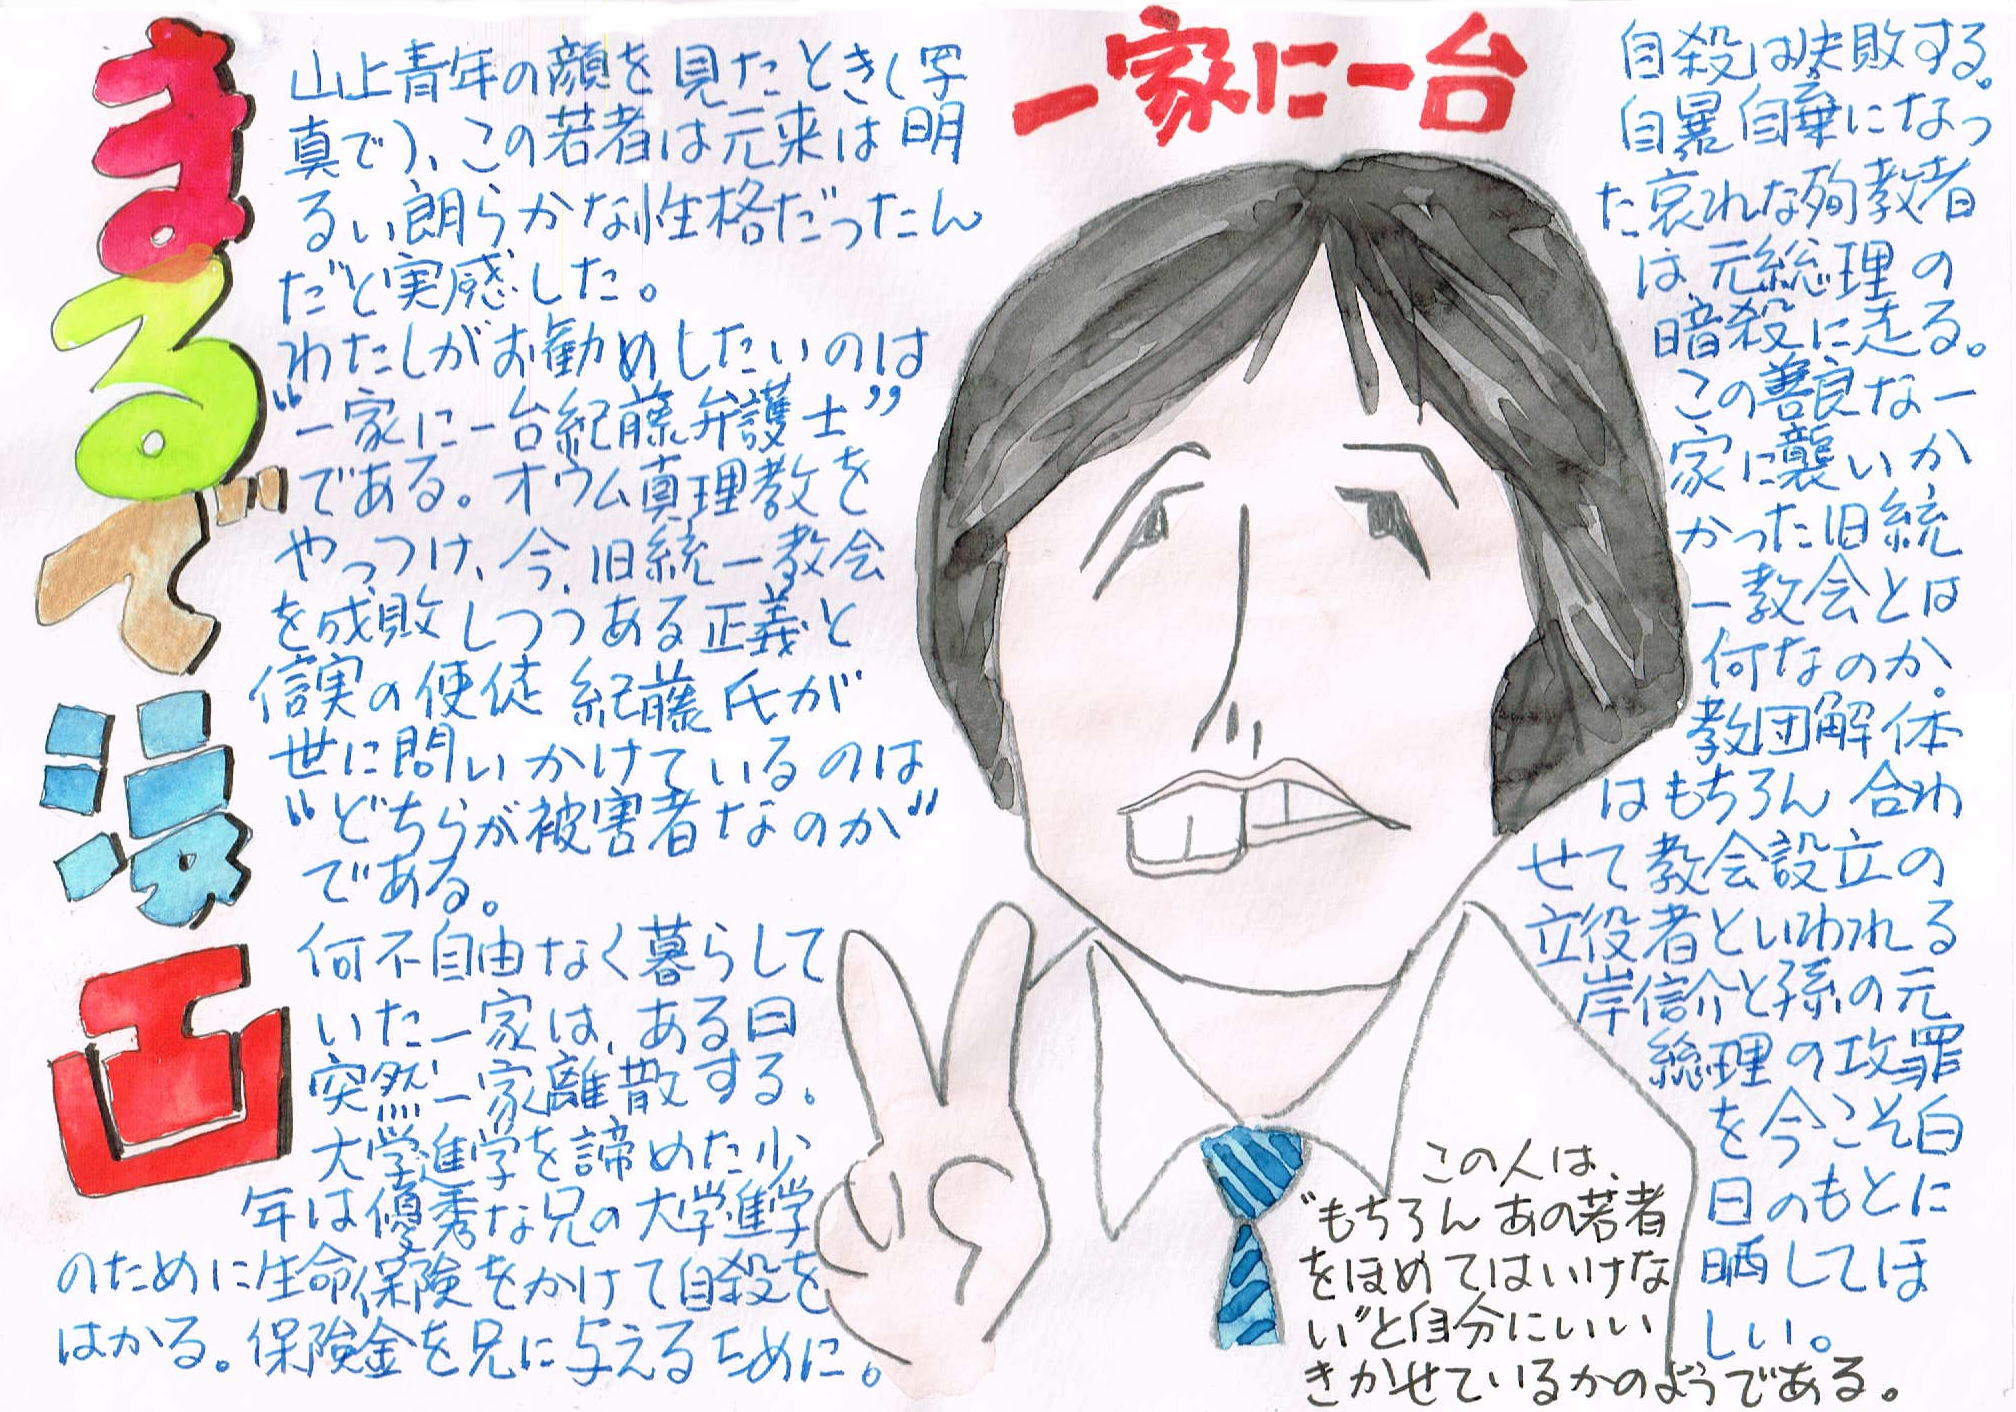 まるで漫画
一家に一台
山上青年の顔を見たとき(写
真で)、この若者は元来は明
るい朗らかな性格だったん
だと実感した。
わたしがお勧めしたいのは
“一家に一台紀藤弁護士”
である。オウム真理教を
やっつけ、今、旧統一教会
を成敗しつつある正義と
信実の使徒 紀藤氏が
世に問いかけているのは
“どちらが被害者なのか”
である。
何不自由なく暮らして
いた一家は、ある日
突然一家離散する。
大学進学を諦めた少
年は優秀な兄の大学進学
のために生命保険をかけて自殺を
はかる。保険金を兄に与えるために。
自殺は失敗する。
自暴自棄になっ
た哀れな殉教者
は元総理の
暗殺に走る。
この善良な一
家に襲いか
かった旧統
一教会とは
何なのか。
教団解体
はもちろん 合わ
せて教会設立の
立役者といわれる
岸信介と孫の元
総理の功罪
を今こそ白
日のもとに
晒してほ
しい。
この人は、
“もちろん あの若者
をほめてはいけな
い”と自分にいい
きかせているかのようである。